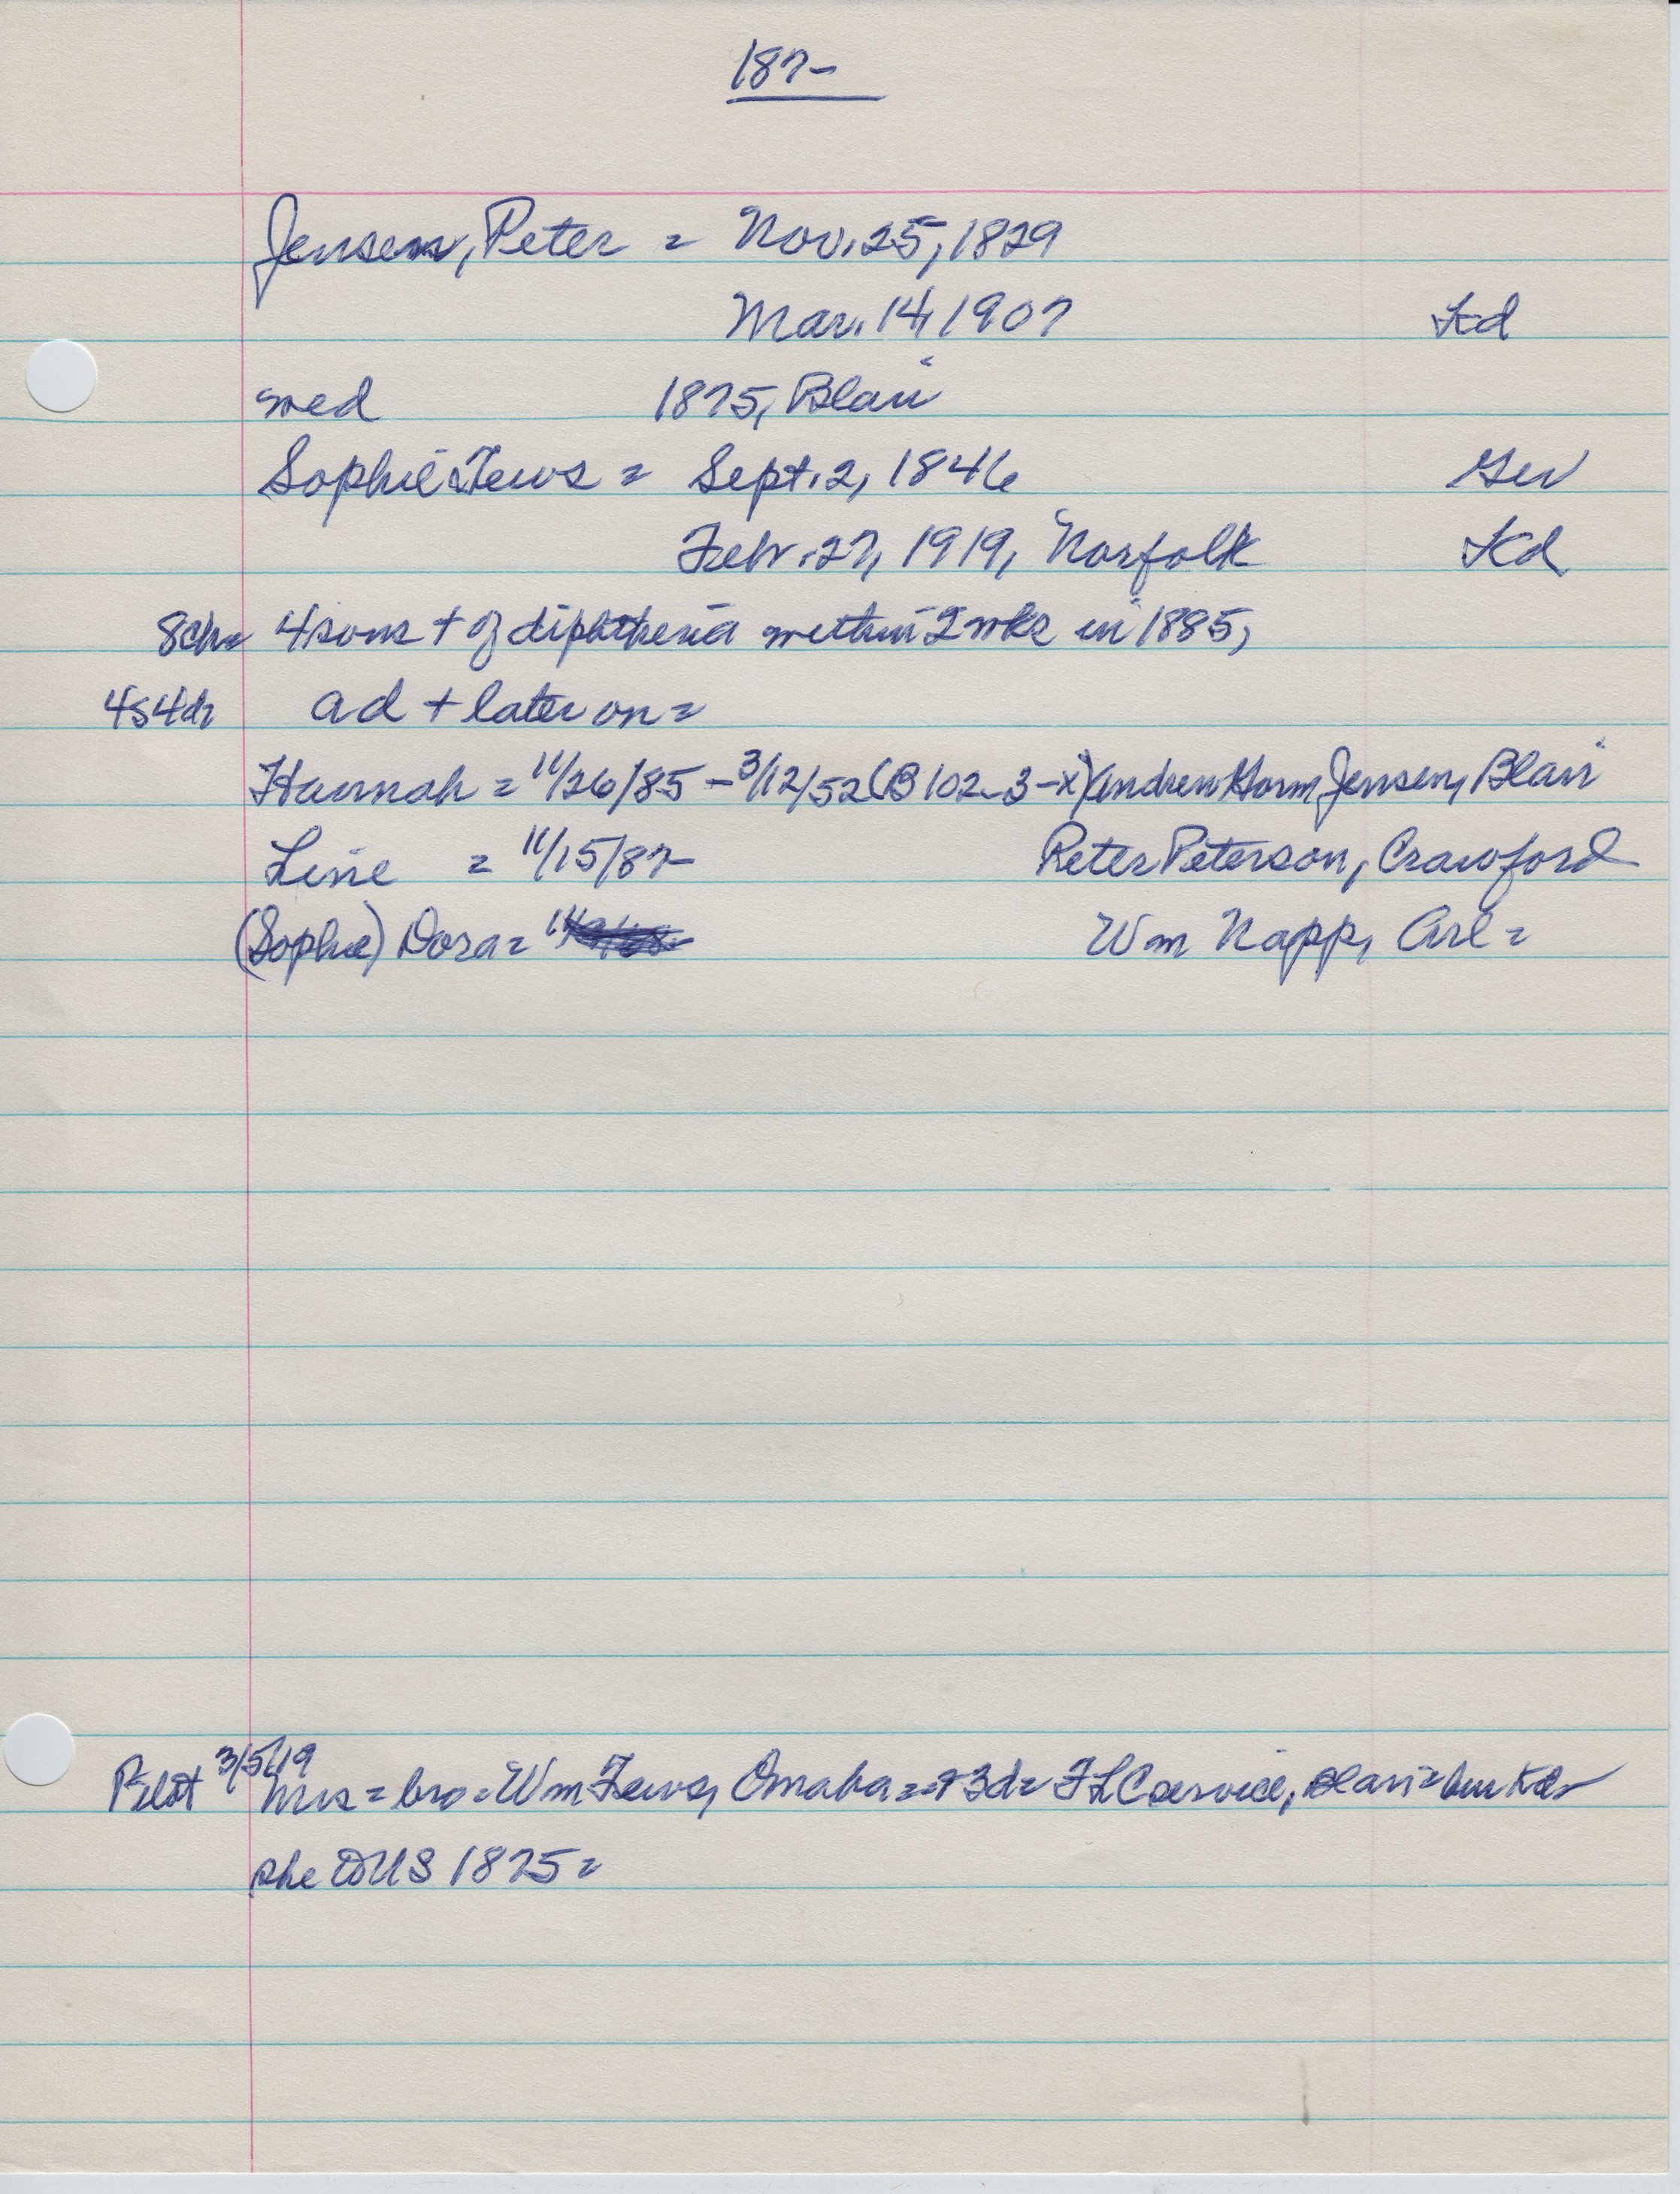 187-
Jensen, Peter = Nov. 25, 1829
Mar. 14, 1907 Kd
wed 1875, Blair
Sophie Tews = Sept. 2, 1846 Ger
Febr. 27, 1919, Norfolk Kd
8ch= 4 sons + of diphtheria within 2 wks in 1885,
4s4d= a d + later on=
Hannah = 11/26/85 - 3/12/52 (B 102-3-x) Andrew Gorm Jensen, Blair
Line = 11/15/87- Peter Peterson, Crawford
(Sophie) Dora= Wm Napp, Carl=
Pilot 3/5/19 Mrs = bro = Wm Tews, Omaha = + 3d= FLC service, Blair = bur Kd=
she US 1875=